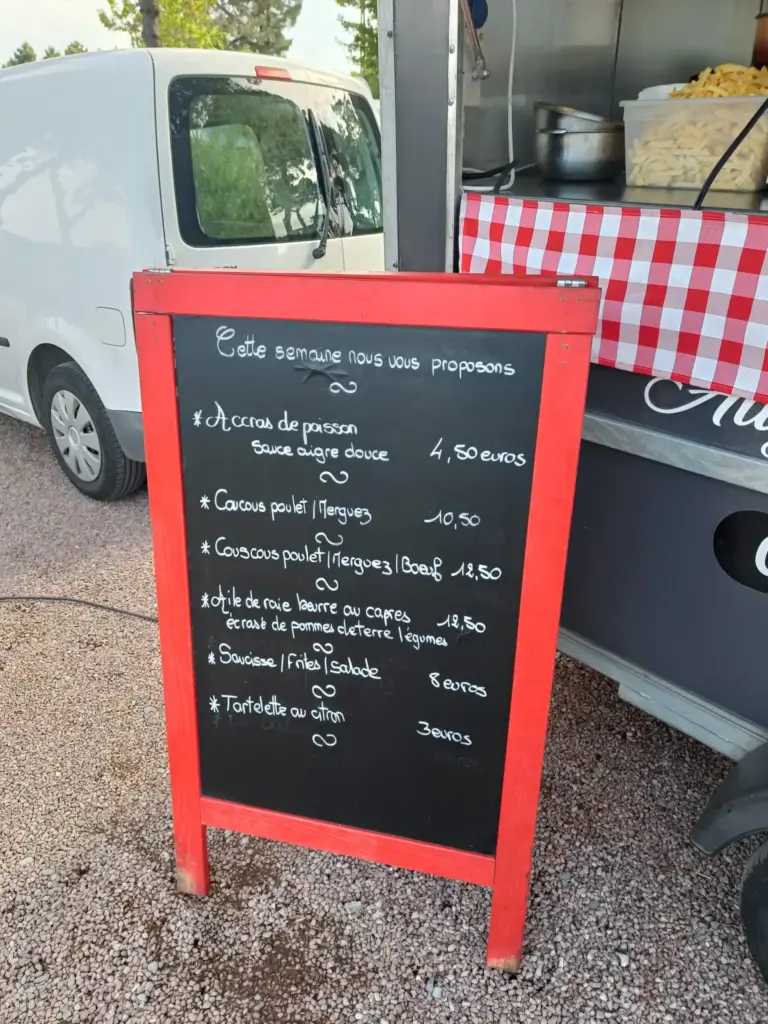 Cette semaine nous vous proposons
* Accras de poisson
Sauce aigre douce 4,50 euros
* Coucous poulet / Merguez 10,50
* Couscous poulet / Merguez / Boeuf 12,50
* Aile de raie beurre au capres 12,50
écrasé de pommes de terre légumes
* Saucisse / frites / salade 8 euros
* Tartelette au citron 3 euros